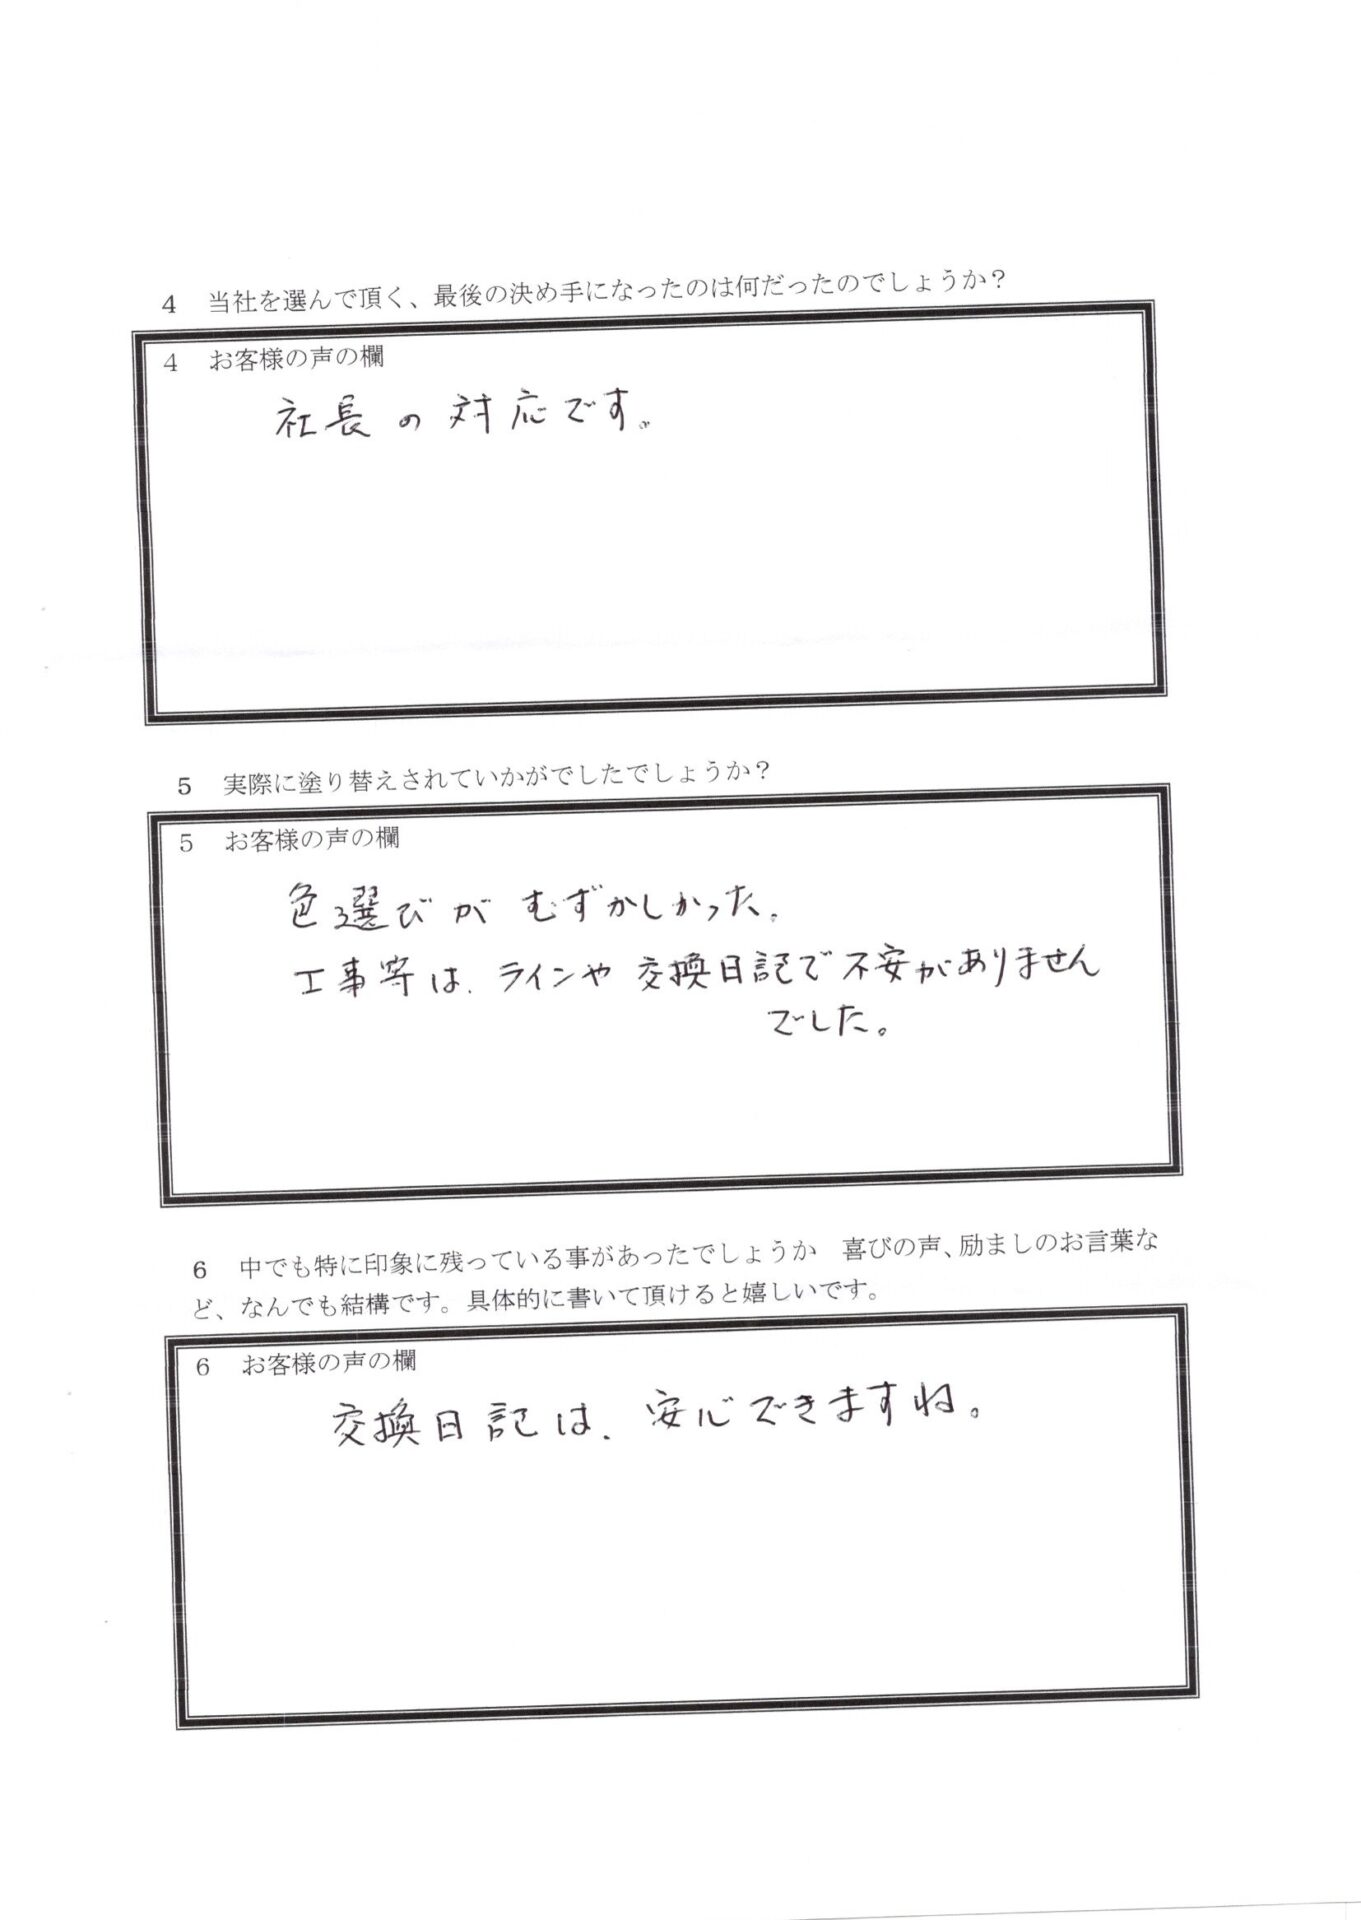 4　当社を選んで頂く、最後の決め手になったのは何だったのでしょうか？
4　お客様の声の欄
社長の対応です。
5　実際に塗り替えされていかがでしたでしょうか？
5　お客様の声の欄
色選びがむずかしかった。
工事等は、ラインや交換日記で不安がありません
でした。
6　中でも特に印象に残っている事があったでしょうか　喜びの声、励ましのお言葉な
ど、なんでも結構です。具体的に書いて頂けると嬉しいです。
6　お客様の声の欄
交換日記は、安心できますね。